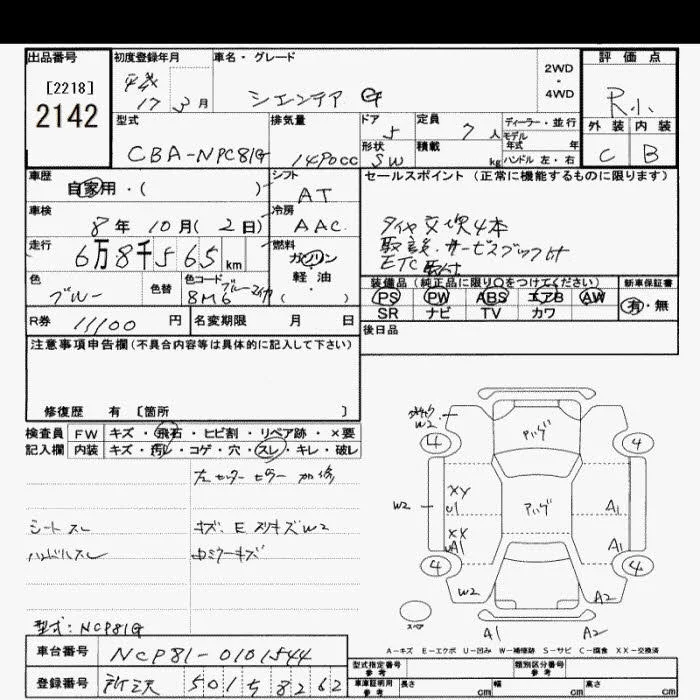 出品番号
[2218]
2142
初度登録年月
平成
17 3月
車名・グレード
シエンタ G
2WD
・
4WD
評価点
R小
外装 内装
C B
型式
CBA-NPC81G
排気量
1490cc
ドア 5
形状 SW
定員 7人
積載 kg
ディーラー・並行
モデル
年式 年
ハンドル 左・右
車歴
自家用・( )
シフト
AT
車検
8年 10月( 2日)
冷房
AAC
走行
6万8千565km
燃料
ガソリン
・
軽・油
( )
色
ブルー
色替
色コード
8M6
セールスポイント (正常に機能するものに限ります)
タイヤ交換4本
取説・サービスブック付
ETC取付
装備品(純正品に限り○をつけてください)
PS PW ABS エアB AW
SR ナビ TV カワ
新車保証書
有・無
R券 11100円
名変期限 月 日
後日品
注意事項申告欄(不具合内容等は具体的に記入して下さい)
修復歴 有 〔箇所 〕
検査員
記入欄
FW キズ・飛石・ヒビ割・リペア跡・×要
内装 キズ・汚レ・コゲ・穴・スレ・キレ・破レ
左センターピラー 加修
シートスレ
ハンドルスレ
キズ、E スリキズW2
型式:NCP81G
車台番号 NCP81-0101544
登録番号 所沢 501 5 8262
W2
4 4
アハゲ
アハゲ
W2
XY
U1
XX
UA1
A1
A1
4 4
W2 A2
スペア
A1 A2
A-キズ E-エクボ U-凹み W-補修跡 S-サビ C-腐食 XX-交換済
型式指定番号
参考
類別区分番号
参考
車庫証明用
参考
長さ cm 幅 cm 高さ cm